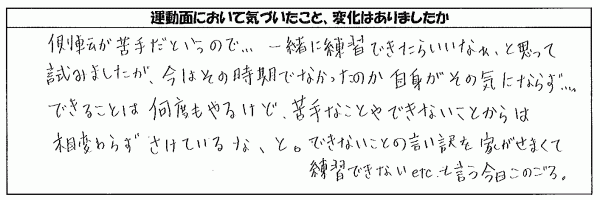 運動面において気づいたこと、変化はありましたか
側転が苦手だというので… 一緒に練習できたらいいなぁ、と思って
試みましたが、今はその時期でなかったのか 自身がその気にならず….
できることは 何度もやるけど、苦手なことや できないことからは
相変わらず さけているな、と。できないことの言い訳を 家がせまくて
練習できない etc. と言う今日このごろ。